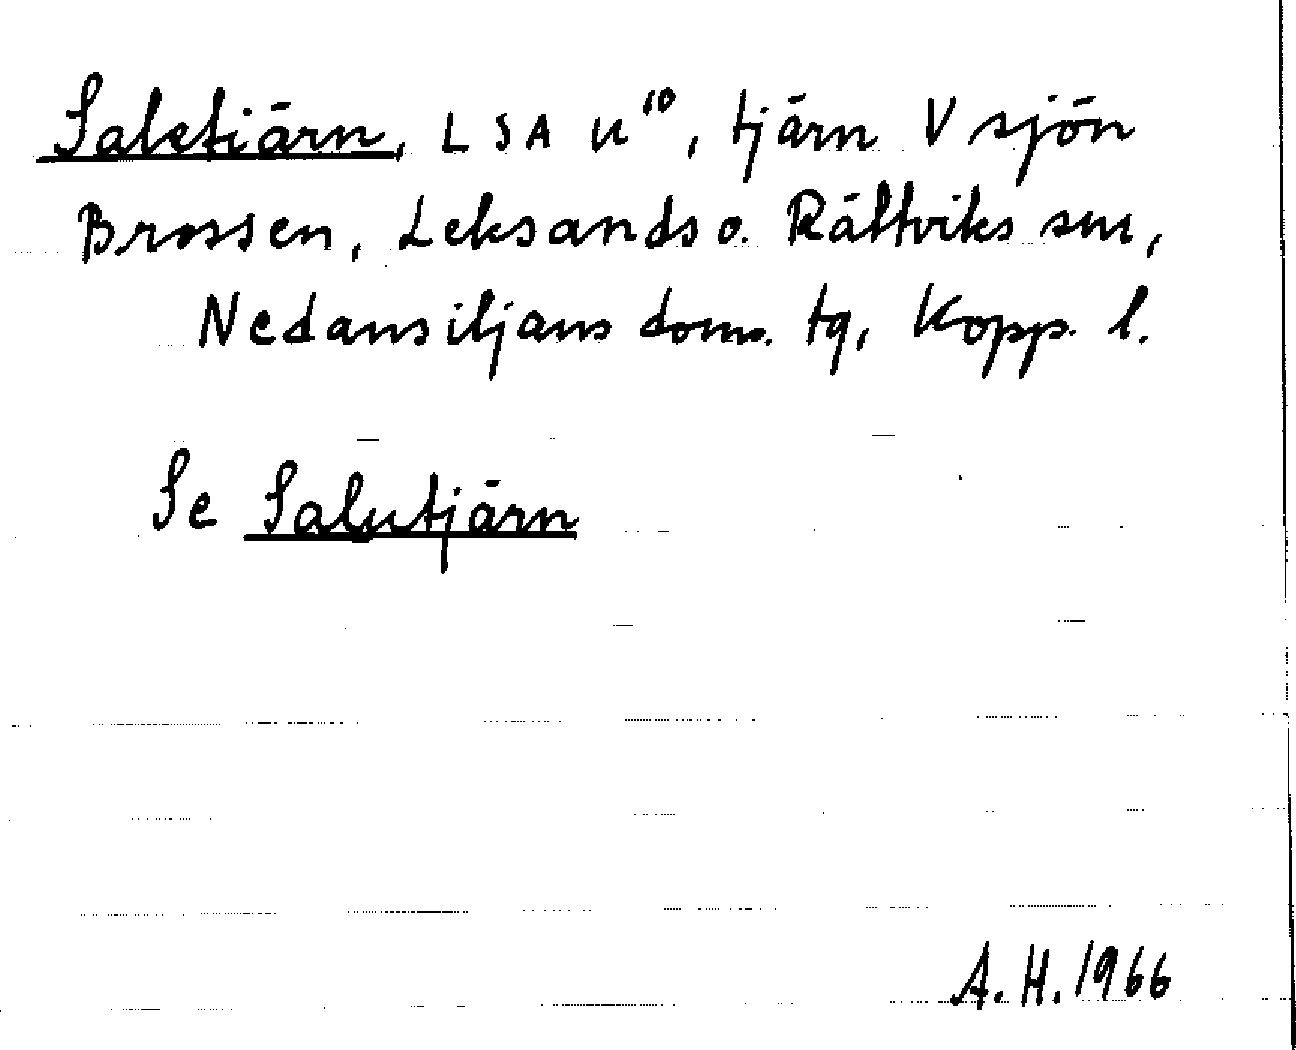 Saletiärn, LSA U¹⁰, tjärn V sjön
Brossen, Leksands o. Rättviks snr,
Nedansiljans doms. tg, Kopp. l.
Se Salutjärn
A. H. 1966